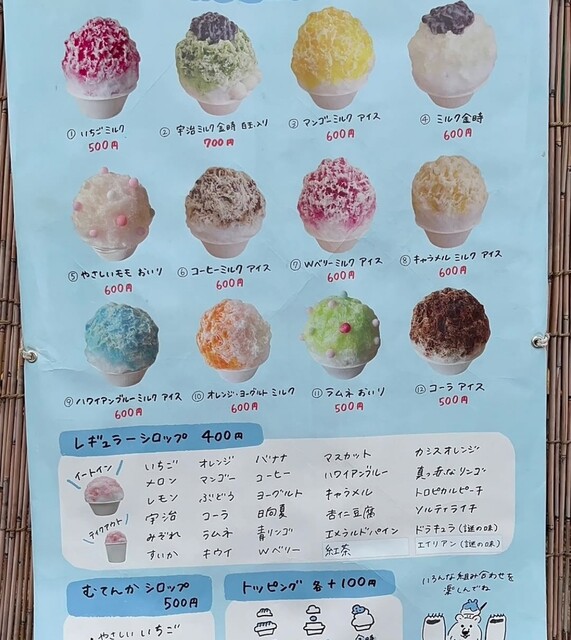 ① いちごミルク
500円
② 宇治ミルク金時 白玉入り
700円
③ マンゴーミルク アイス
600円
④ ミルク金時
600円
⑤ やさしいモモ おいり
600円
⑥ コーヒーミルク アイス
600円
⑦ Wベリーミルク アイス
600円
⑧ キャラメル ミルク アイス
600円
⑨ ハワイアンブルーミルク アイス
600円
⑩ オレンジ・ヨーグルト ミルク
600円
⑪ ラムネ おいり
500円
⑫ コーラ アイス
500円
レギュラーシロップ 400円
イートイン
テイクアウト
いちご オレンジ バナナ マスカット カシスオレンジ
メロン マンゴー コーヒー ハワイアンブルー 真っ赤なリンゴ
レモン ぶどう ヨーグルト キャラメル トロピカルピーチ
宇治 コーラ 日向夏 杏仁豆腐 ソルティライチ
みぞれ ラムネ 青リンゴ エメラルドパイン ドラキュラ(謎の味)
すいか キウイ Wベリー 紅茶 エイリアン(謎の味)
むてんか シロップ
500円
・やさしい いちご
トッピング 各+100円
金時
いろんな組み合わせを
楽しんでね